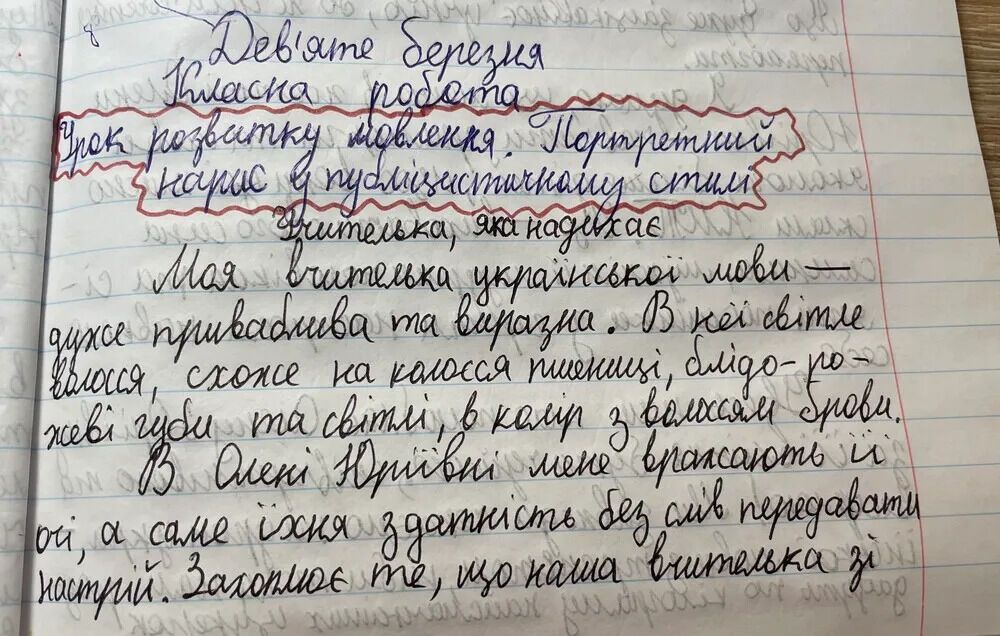 Дев'яте березня
Класна робота
Урок розвитку мовлення. Портретний
нарис у публіцистичному стилі
Вчителька, яка надихає
Моя вчителька української мови —
дуже приваблива та виразна. В неї світле
волосся, схоже на колосся пшениці, блідо-ро-
жеві губи та світлі, в колір з волоссям брови.
В Олені Юріївні мене вражають її
очі, а саме їхня здатність без слів передавати
настрій. Захоплює те, що наша вчителька зі